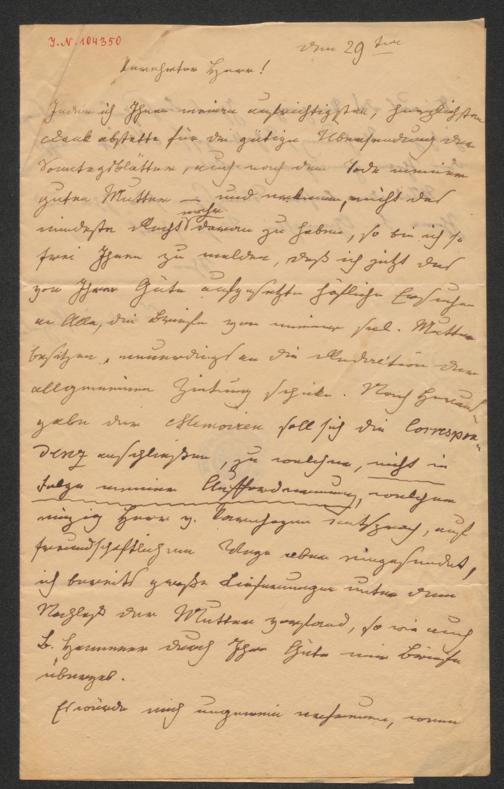 J.N. 104350
den 29ten
Verehrter Herr!
Indem ich Ihnen meinen aufrichtigsten, herzlichsten
Dank abstatte für die gütige Übersendung der
Sonntagsblätter, auch nach dem Tode meiner
guten Mutter – und nicht das
mindeste Recht mehr daran zu haben, so bin ich so
frei Ihnen zu melden, daß ich jetzt das
von Ihrer Güte aufgesetzte höfliche Ersuchen
an Alle, die Briefe von meiner sel. Mutter
besitzen, neuerdings an die Redaktion der
allgemeinen Zeitung schicke. Nach Heraus-
gabe der Memoiren soll sich die Correspon-
denz anschließen, zu welcher, nicht in
Folge meiner Aufforderung, welcher
einzig Herr v. Varnhagen entsprach, auf
freundschaftlichem Wege aber eingesendet,
ich bereits große Lieferungen unter dem
Nachlaß der Mutter vorfand, so wie auch
B. Hammer durch Ihre Güte mir Briefe
übergab.
Es würde mich ungemein erfreuen, wenn